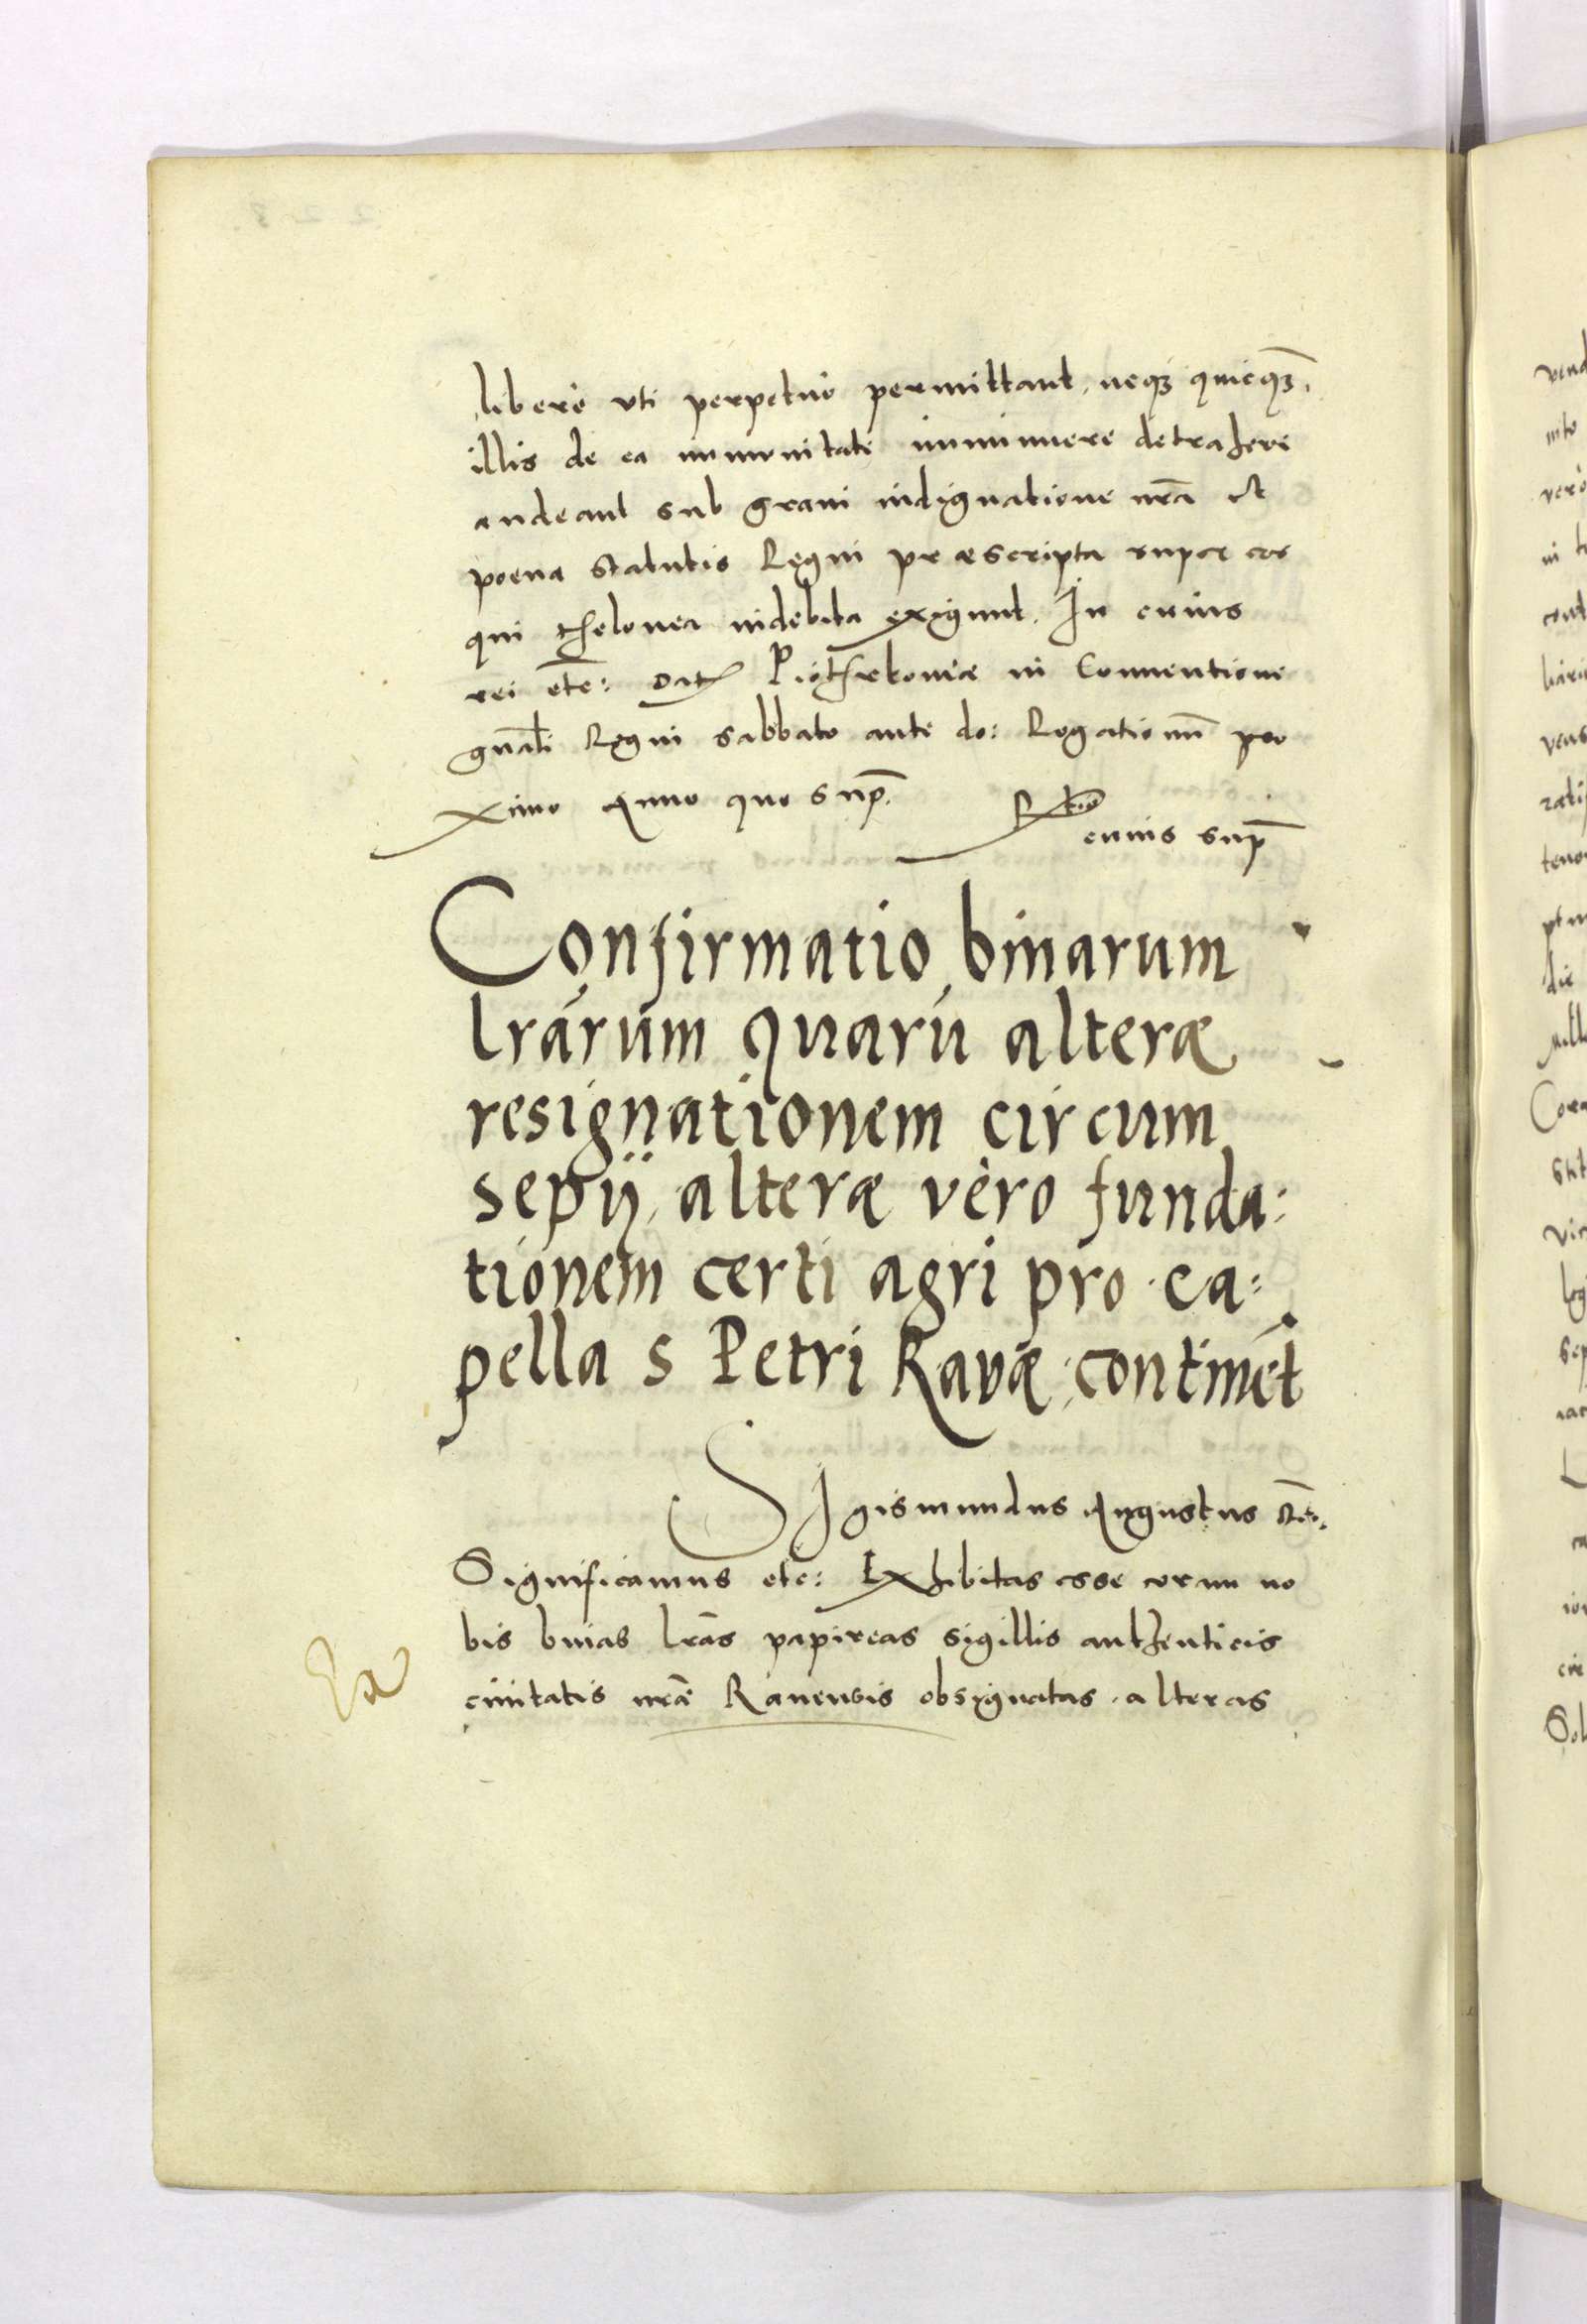 libere vti perpetuo permittant, neqꝫ quicqꝫ̃
illis de ea immunitate imminuere detrahere
audeant sub graui indignatione nrã et
poena statutis Regni præscripta super eos
qui thelonea indebita exigunt. In cuius
rei etc̃: Dat Piothrkouiæ in Conuentione
gnãli Regni sabbato ante do: Rogationũ pro
ximo Anno quo sup̃.
cuius sup̃
Confirmatio binarum
lrarum quarũ alteræ
resignationem circum
sepij, alteræ vèro funda:
tionem certi agri pro ca:
pella s Petri Ravæ continẽt
SIgismundus Augustus
Significamus etc: Exhibitas esse coram no
bis binas lrãs papireas sigillis authenticis
ciuitatis nrãe Rauensis obsignatas, alteras